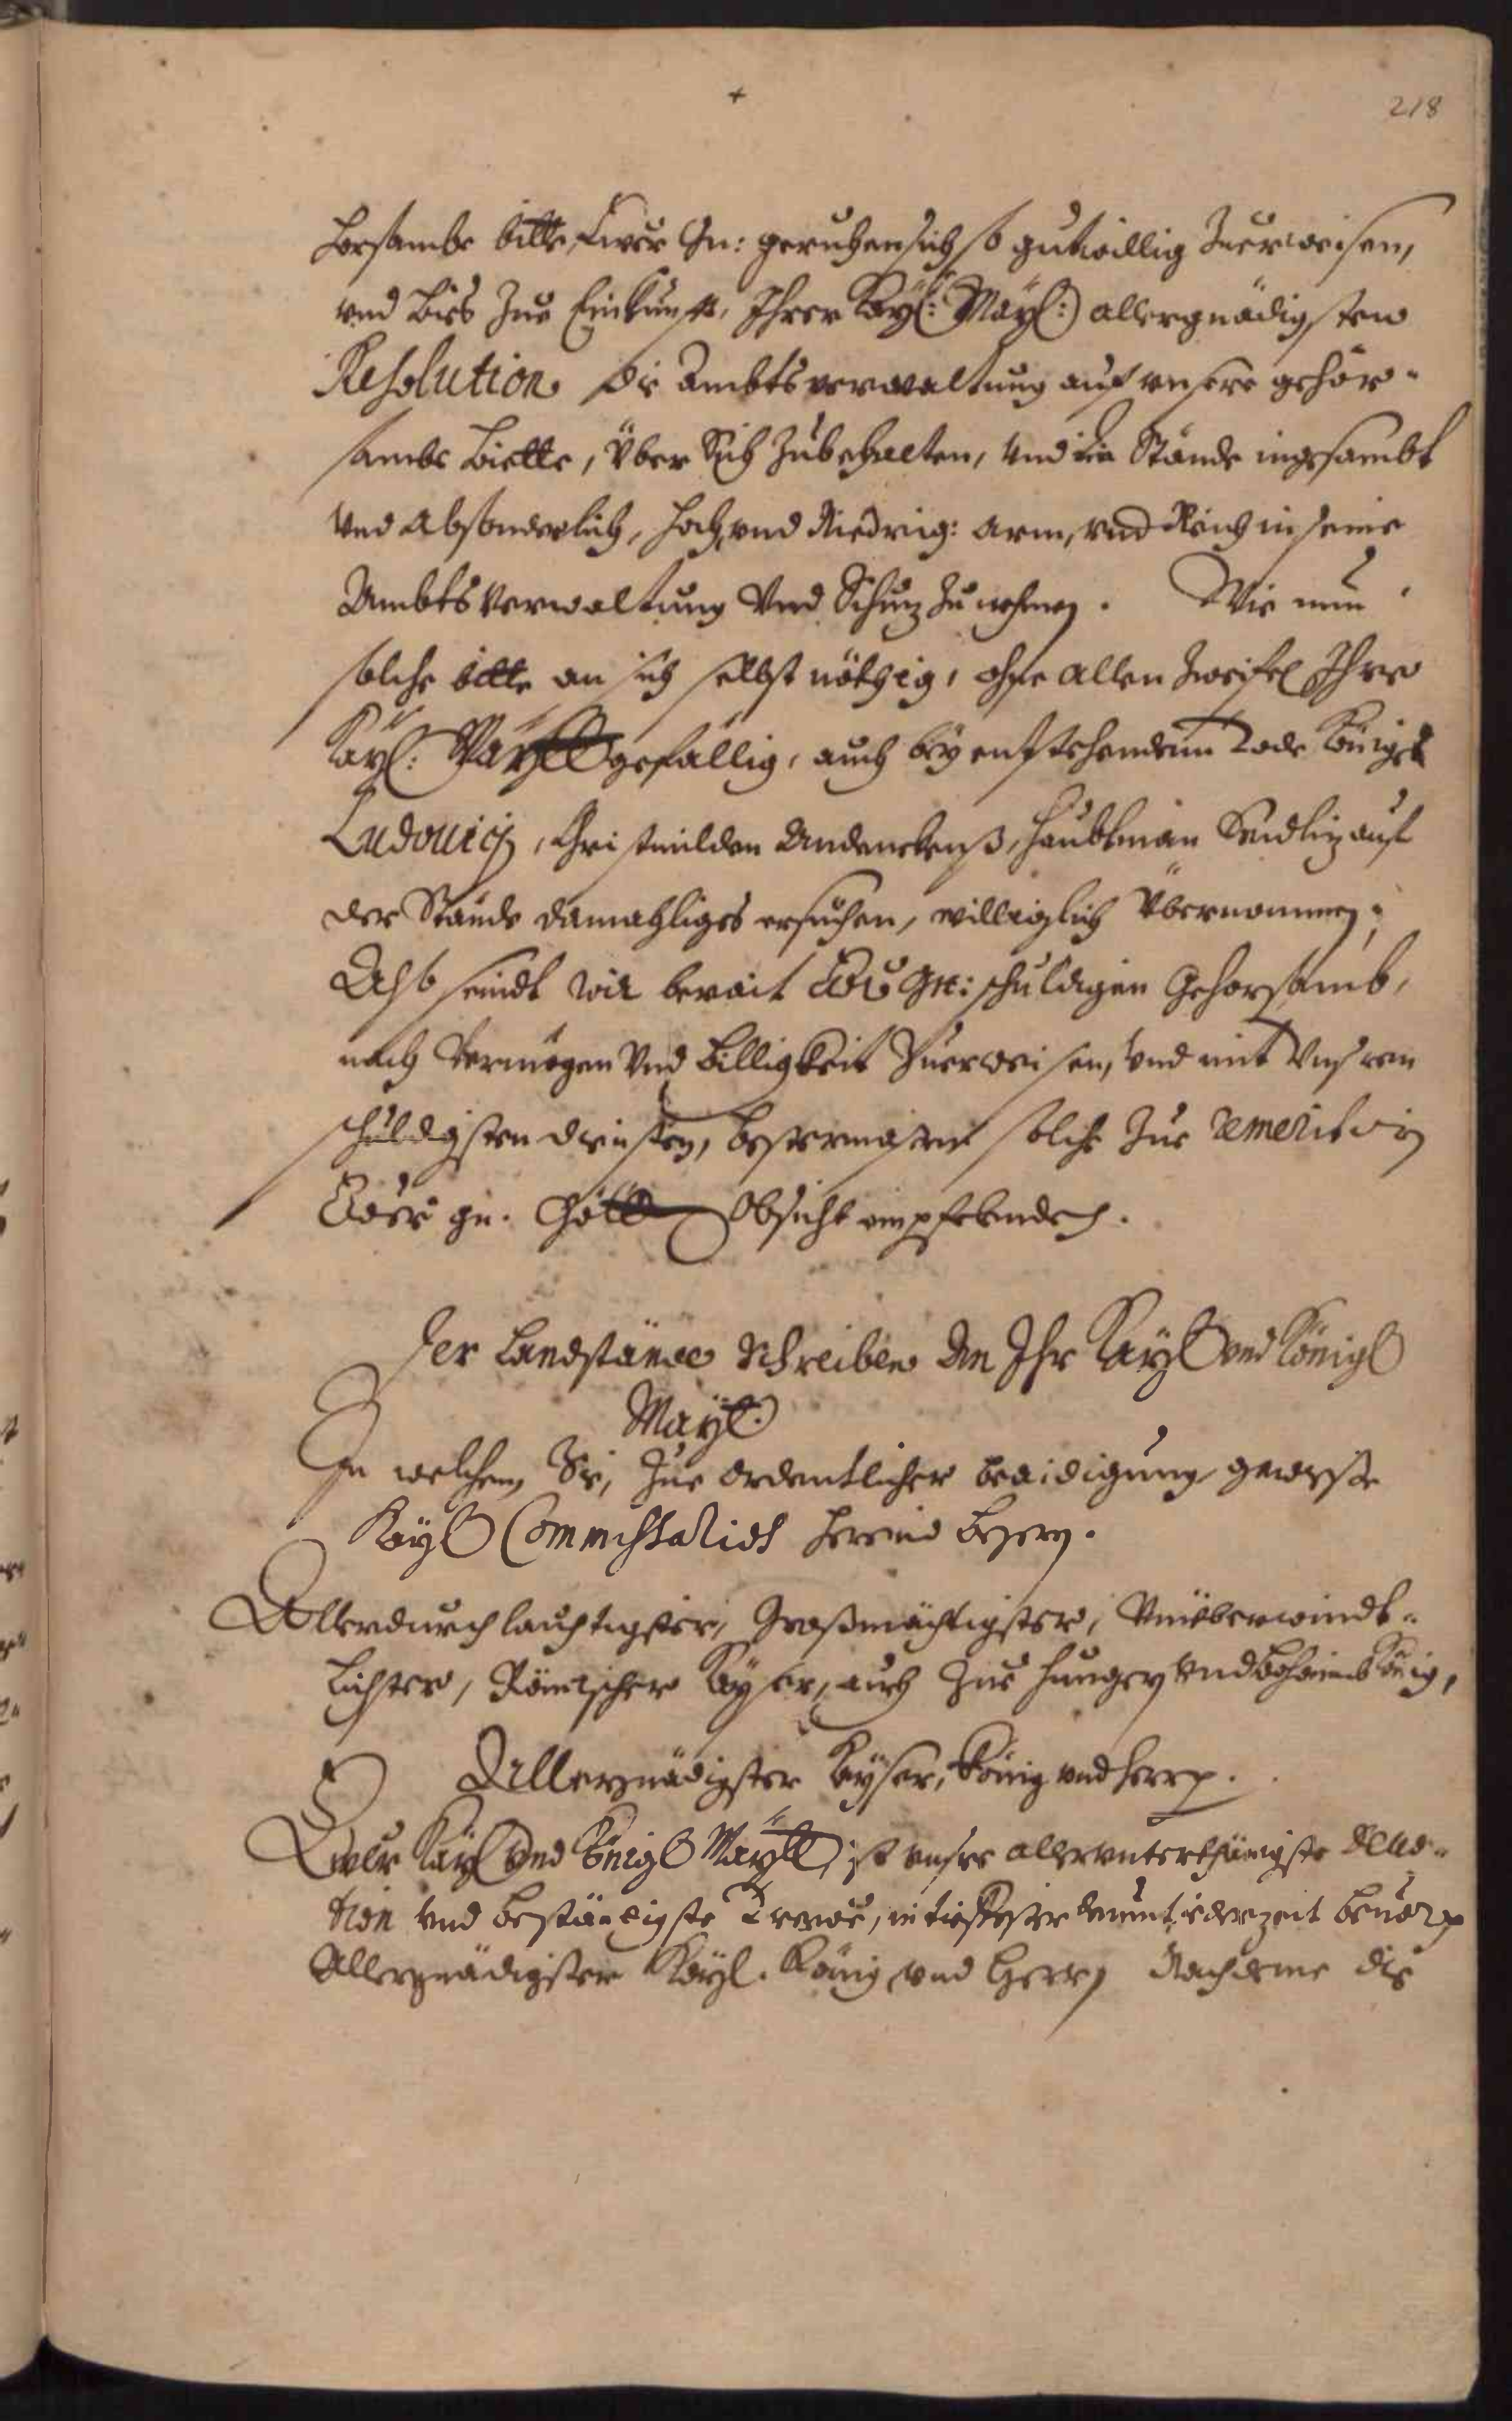 +
218
horsambe bitte, Ewer Gn: geruhen sich so gutwillig Zuerweisen,
vnd bies Zue Einkunfft, Ihrer Kayl: Mayl:) allergnädigsten
Resolution die Ambtsverwaltung auf vnsere gehor-
sambe biette, über Sich Zubehalten, Und die Stände ingesambt
Vnd absonderlich, hoch, vnd Niedrig: arm, vnd Reich in seine
Ambts Verwaltung Vnd Schuz Zunehmen. Wie nun
solche bitte an sich selbst nöthig, ohne allen Zweifel Ihrer
Kayl: Maytt gefällig, auch bey entstehendem Tode Königs
Ludouici, Christmilden Andenckenß, Haubtman Seidliz auf
der Stände damahliges ersuchen, williglich übernommen;
Also seindt wir berait Ew Gn: schuldigen Gehorsamb,
nach Vermögen Vnd Billigkeit Zuerweisen, Vnd mit Vnsren
schuldigsten diensten, bestermasen solche Zue demeriren
Ewer gn. Göttl Obsicht empfehlende.
Der Landstände Schreiben An Ihr Kayl vnd Königl
Mayt.
In welchem Sie, Zue ordentlicher beaidigung gewisse
Kayl Commissarios herein begern.
Allerdurchlauchtigster, Großmächtigster, Vnüberwindt-
lichster, Römischer Kayser, auch Zue Hungern Vnd Böheimb König,
Allergnädigster Kayser, König vnd Herr.
Ewer Kayl Vnd Königl Maytt, ist vnsre allerunterthänigste deuo-
tion Vnd beständigste Trewe, in tieffester demut iederzeit beuor
Allergnädigster Kayl. König, vnd Herr, Nachdeme die